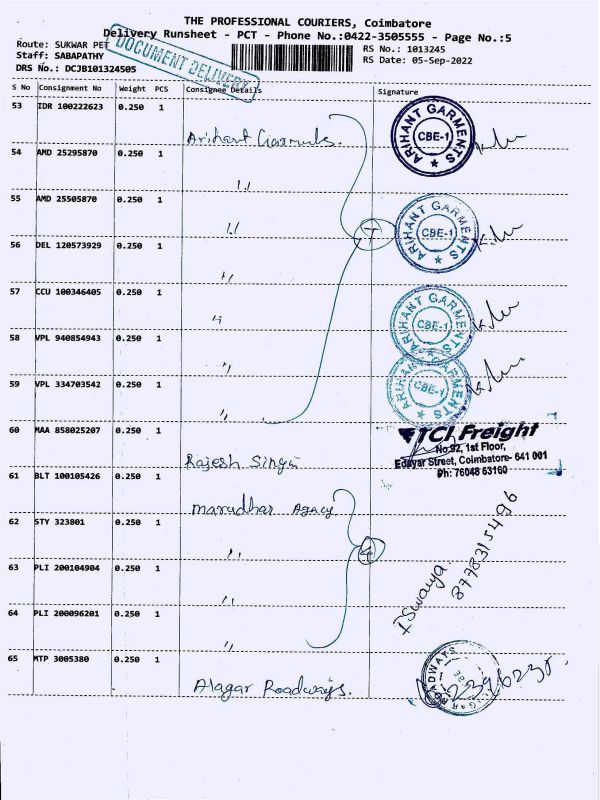 THE PROFESSIONAL COURIERS, Coimbatore
Delivery Runsheet - PCT - Phone No.:0422-3505555 - Page No.:5
Route: SUKWAR PET
Staff: SABAPATHY
DRS No.: DCJB101324505
DOCUMENT DELIVERY
RS No.: 1013245
RS Date: 05-Sep-2022
S No Consignment No Weight PCS Consignee Details Signature
53 IDR 100222623 0.250 1
Arihant Garments.
ARIHANT GARMENTS CBE-1
54 AMD 25295870 0.250 1
"
55 AMD 25505870 0.250 1
"
7
ARIHANT GARMENTS CBE-1
56 DEL 120573929 0.250 1
"
57 CCU 100346405 0.250 1
"
ARIHANT GARMENTS CBE-1
58 VPL 940854943 0.250 1
"
ARIHANT GARMENTS CBE-1
59 VPL 334703542 0.250 1
"
60 MAA 858025207 0.250 1
Rajesh Singh
TCI Freight
No.92, 1st Floor,
Edayar Street, Coimbatore- 641 001
Ph: 76048 63160
61 BLT 100105426 0.250 1
Marudhar Agacy
62 STY 323801 0.250 1
"
4
63 PLI 200104904 0.250 1
"
ISwarya
8778315496
64 PLI 200096201 0.250 1
"
65 MTP 3005380 0.250 1
Alagar Roadways.